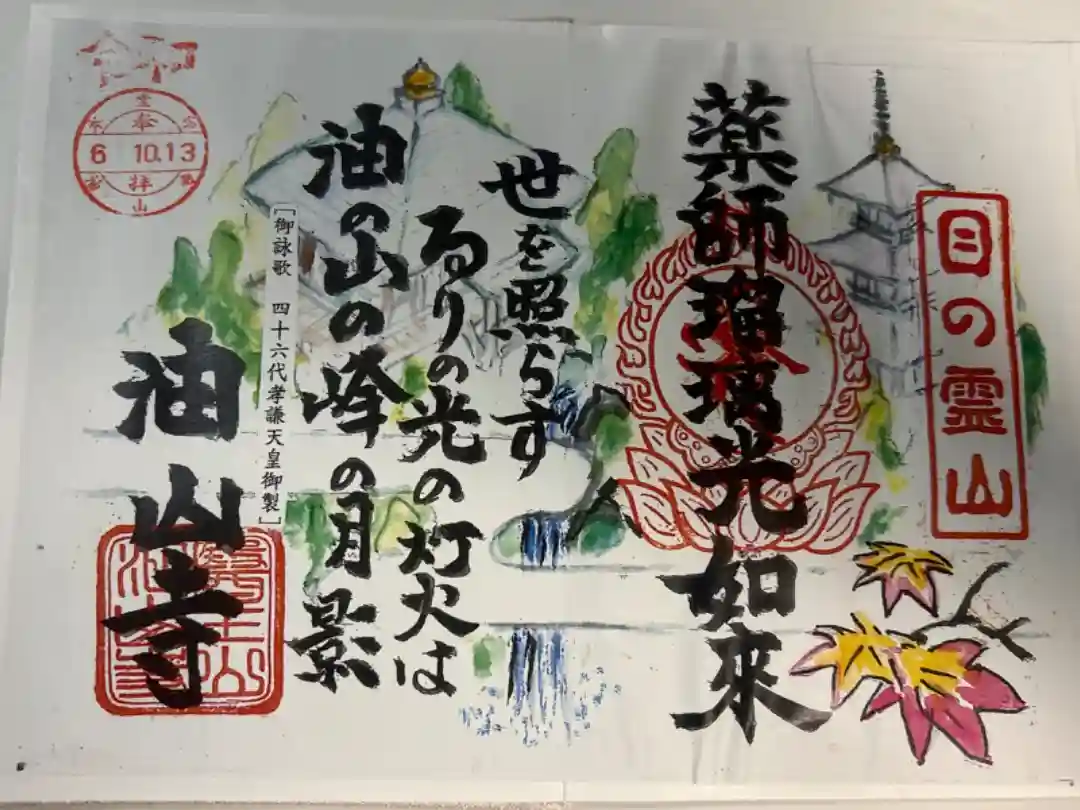 目の霊山
薬師瑠璃光如来
世を照らす
るりの光の灯火は
油の山の峰の月影
［御詠歌　四十六代孝謙天皇御製］
油山寺
奉
6 10.13
拝
山